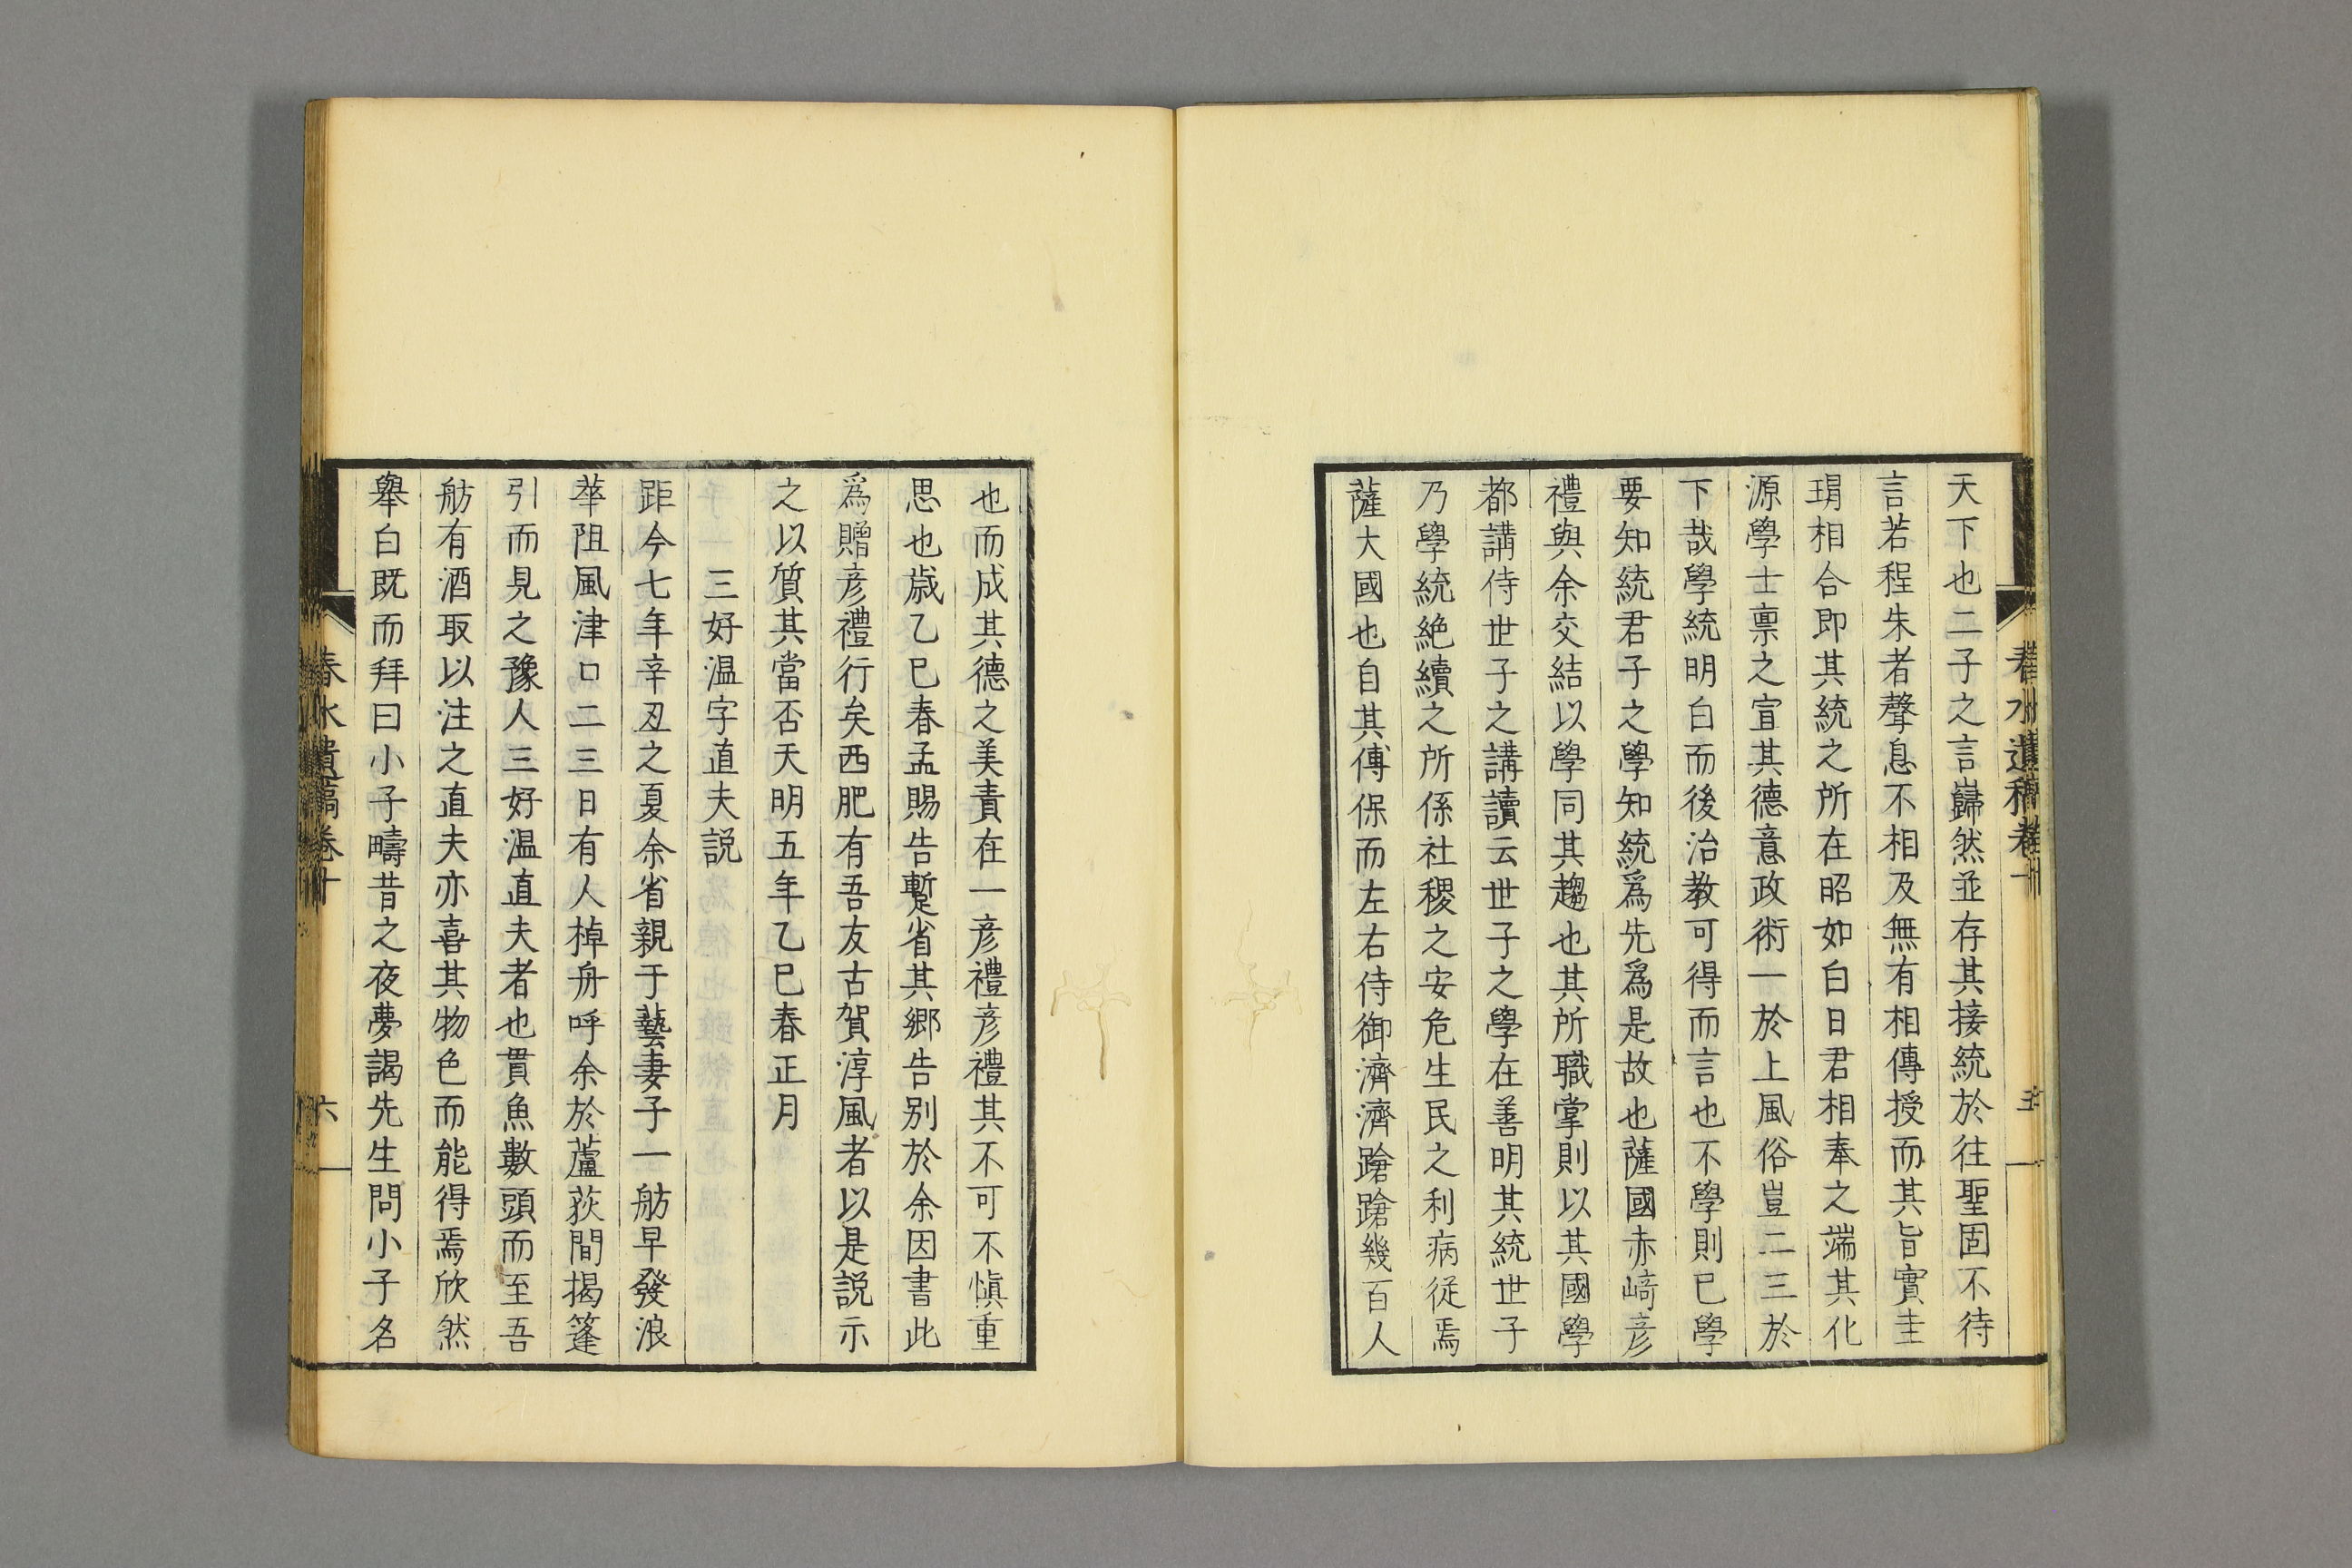 天下也二子之言巋然並存其接統於往聖固不待
言若程朱者聲息不相及無有相傳授而其旨實圭
瑁相合即其統之所在昭如白日君相奉之端其化
源學士禀之宣其德意政術一於上風俗豈二三於
下哉學統明白而後治教可得而言也不學則已學
要知統君子之學知統爲先爲是故也薩國赤﨑彦
禮與余交結以學同其趨也其所職掌則以其國學
都講侍世子之講讀云世子之學在善明其統世子
乃學統絶續之所係社稷之安危生民之利病從焉
薩大國也自其傅保而左右侍御濟濟蹌蹌幾百人
也而成其德之美責在一彦禮彦禮其不可不愼重
思也歳乙巳春孟賜告暫省其郷告别於余因書此
爲贈彦禮行矣西肥有吾友古賀淳風者以是説示
之以質其當否天明五年乙巳春正月
三好温字直夫説
距今七年辛丑之夏余省親于藝妻子一舫早發浪
華阻風津口二三日有人棹舟呼余於蘆荻間揭篷
引而見之豫人三好温直夫者也貫魚數頭而至吾
舫有酒取以注之直夫亦喜其物色而能得焉欣然
舉白既而拜曰小子疇昔之夜夢謁先生問小子名
春水遺稿卷十
六